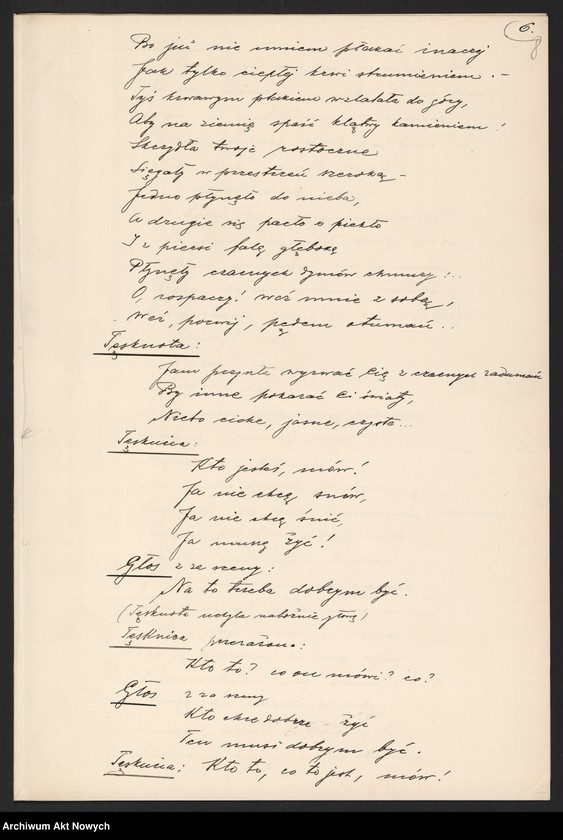 6.
Bo już nie umiem płakać inaczej
Jak tylko ciepłej krwi strumieniem. –
Tyś krwawym ptakiem wzlatała do góry,
Aby na ziemię spaść klątwy kamieniem!
Skrzydła twoje roztoczne
Sięgały w przestrzeń szeroką –
Jedno płynęło do nieba,
A drugie się parło o piekło
I z piersi falą głęboką
Płynęły czarnych dymów chmury...
O, rospaczy! weź mnie z sobą,
Weź, porwij, pędem otumań..
Tęsknota:
Jam przyszła wyrwać Cię z czarnych zadumań
By inne pokazać Ci światy,
Niebo ciche, jasne, czyste...
Tęsknica:
Kto jesteś, mów!
Ja nie chcę snów,
Ja nie chcę śnić,
Ja muszę żyć!
Głos z za sceny:
Na to trzeba dobrym być.
(Tęsknota uchyla nabożnie głowę)
Tęsknica przerażona:
Kto to? co on mówi? co?
Głos z za sceny
Kto chce dobrze żyć
Ten musi dobrym być.
Tęsknica: Kto to, co to jest, mów!
Archiwum Akt Nowych